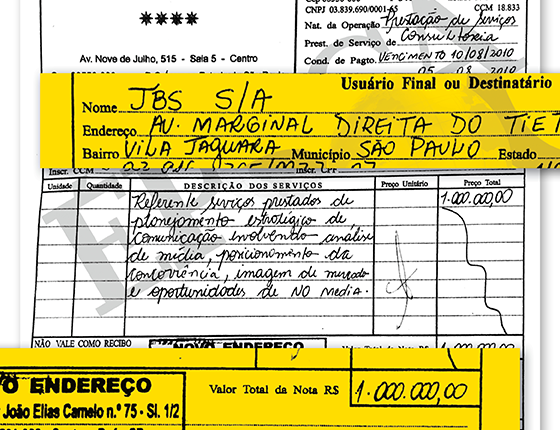 CNPJ 03.839.690/0001-65 CCM 18.833
Nat. da Operação Prestação de serviços
Prest. de Serviço de Consultoria
Cond. de Pagto. VENCIMENTO 10/08/2010
05 08 2010
****
Av. Nove de Julho, 515 - Sala 5 - Centro
Usuário Final ou Destinatário
Nome JBS S/A
Endereço AV. MARGINAL DIREITA DO TIET
Bairro VILA JAGUARA Município SÃO PAULO Estado
Inscr. CCM Inscr. CPF
Unidade Quantidade DESCRIÇÃO DOS SERVIÇOS Preço Unitário Preço Total
Referente serviços prestados de 1.000.000,00
planejamento estratégico de
comunicação envolvendo análise
de mídia, posicionamento da
concorrência, imagem de mercado
e oportunidades de NO MEDIA.
NÃO VALE COMO RECIBO NOVO ENDEREÇO Valor Total da Nota R$ 1.000.000,00
O ENDEREÇO
Valor Total da Nota R$ 1.000.000,00
João Elias Camelo n.º 75 - Sl. 1/2